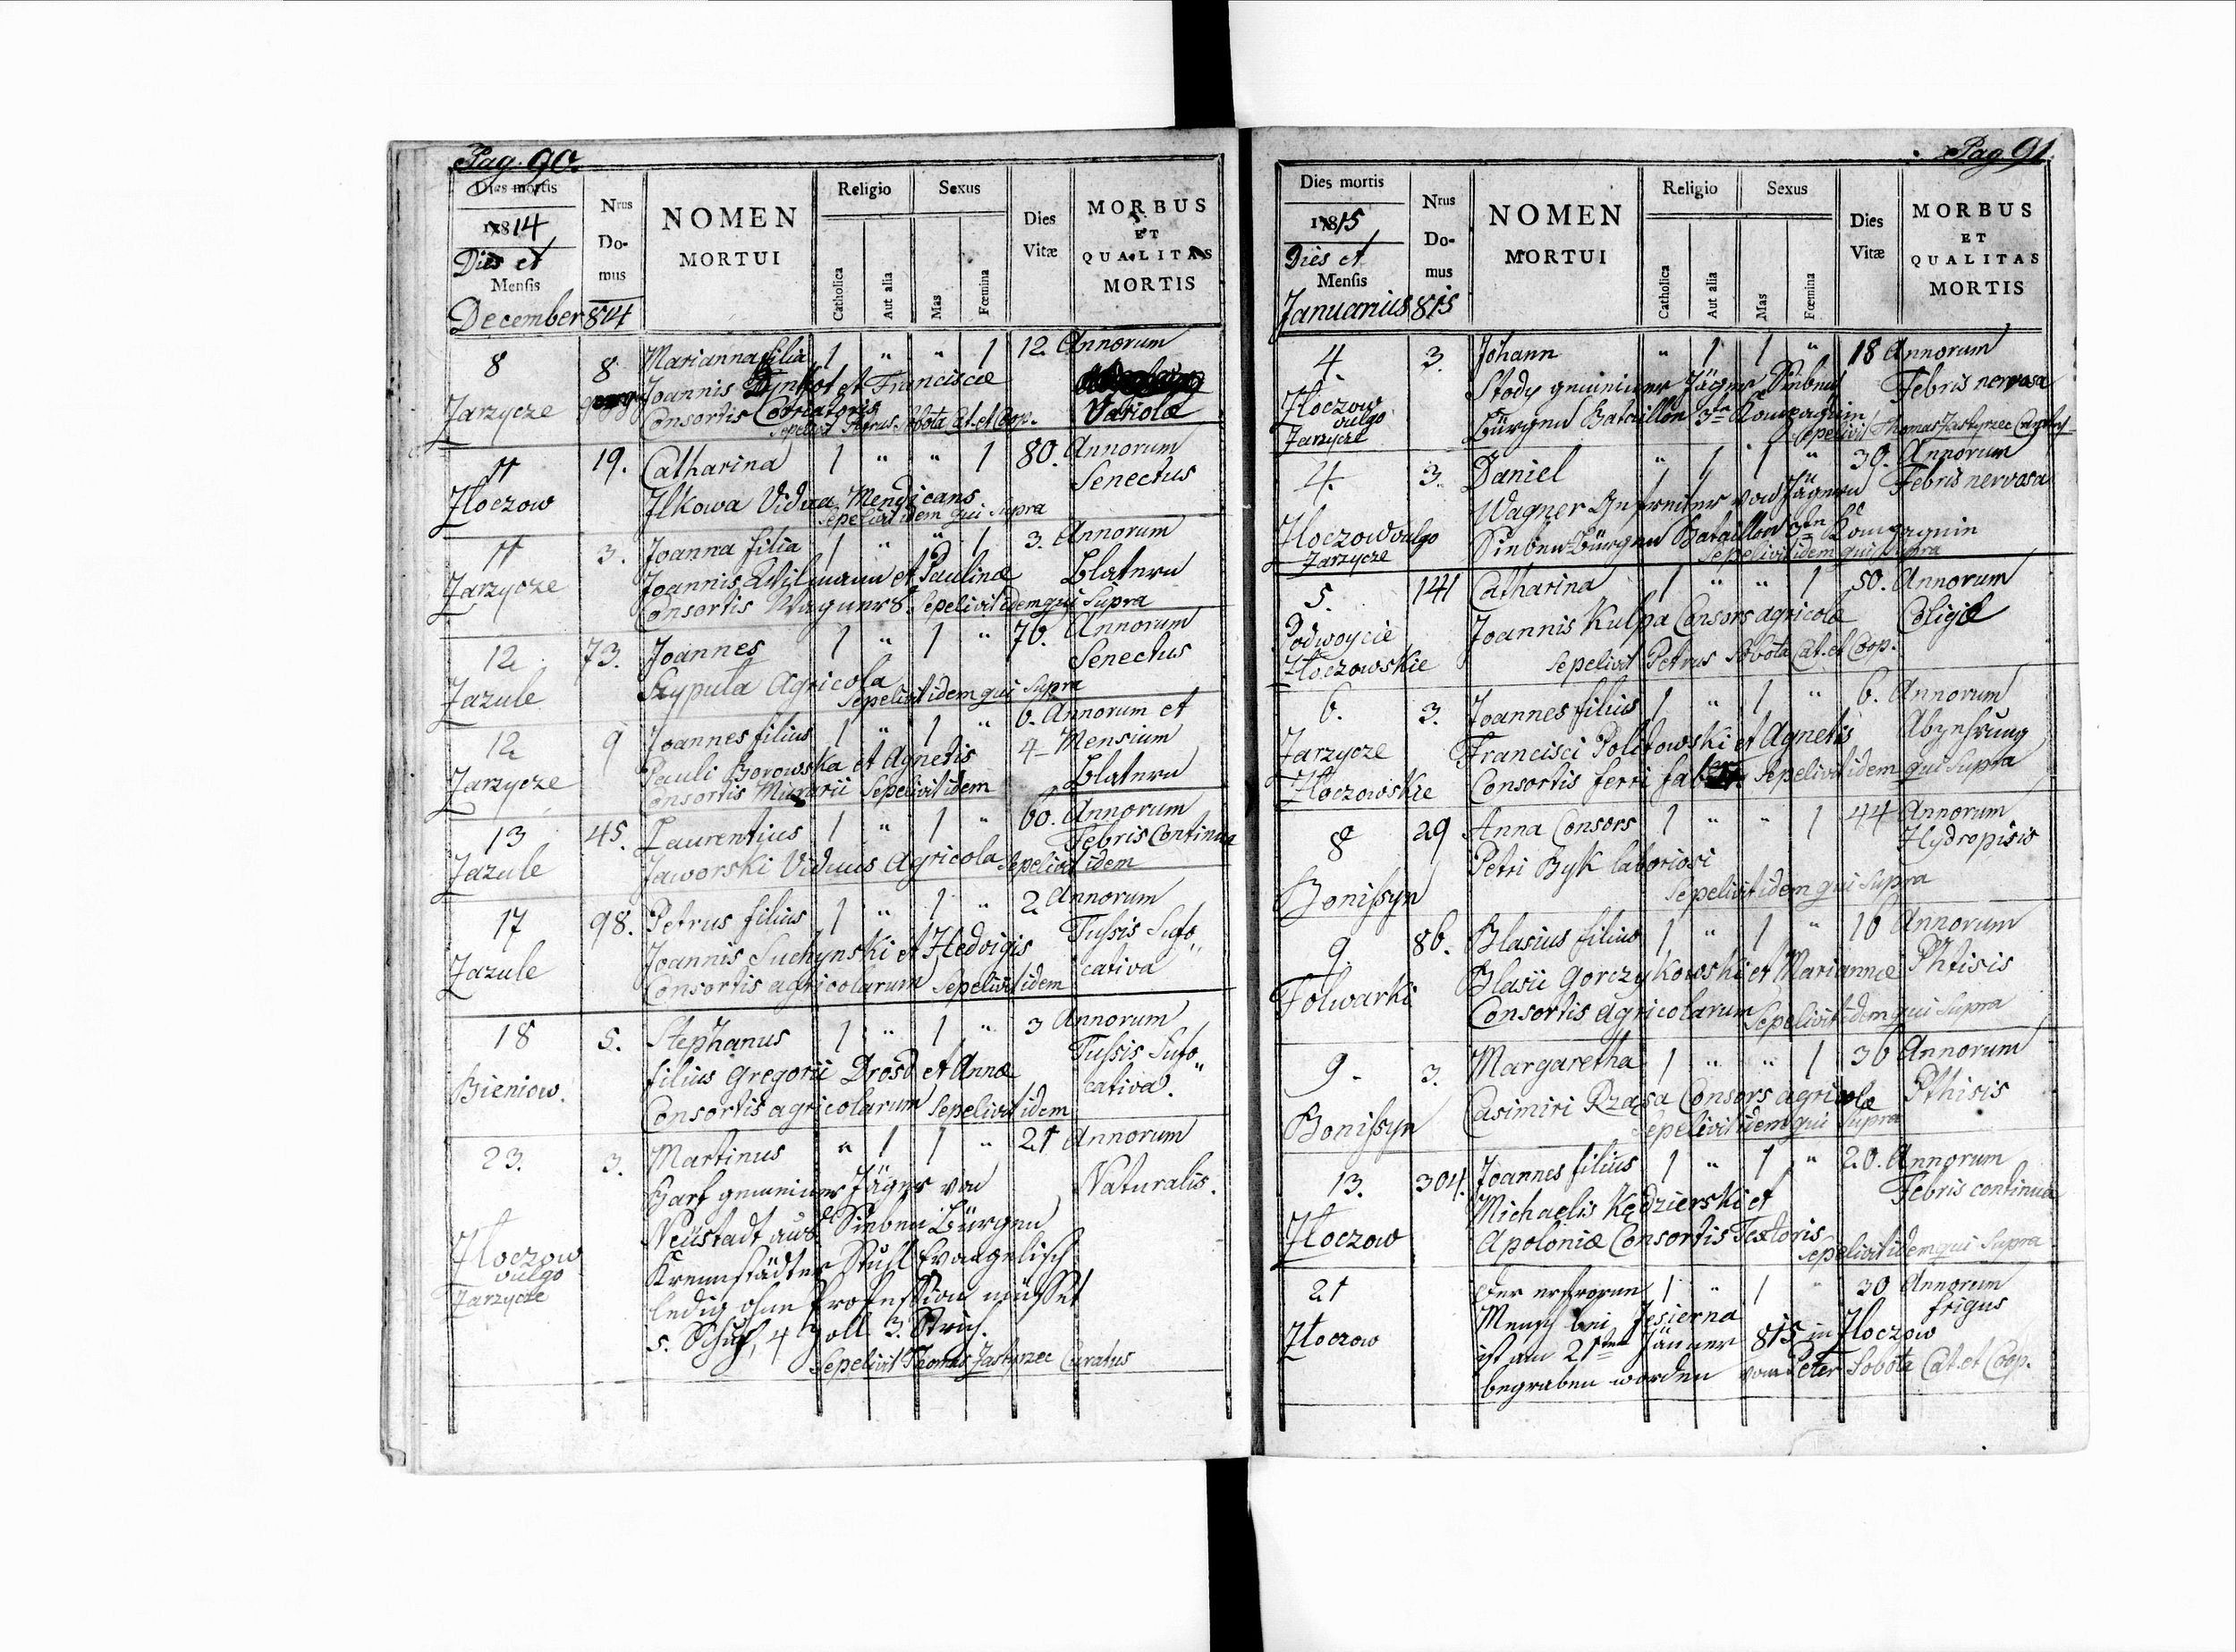 Pag. 90.
Dies mortis
Nrus Domus
NOMEN MORTUI
Religio
Catholica
Aut alia
Sexus
Mas
Fœmina
Dies Vitæ
MORBUS ET QUALITAS MORTIS
1814
Dies et
Mensis
December 814
8 8 Marianna filia 1 " " 1 12 Annorum
Jarzycze Joannis et Franciscæ
Consortis Variolæ
Sepelivit Petrus Sobota Cat. et Coop.
11 19. Catharina 1 " " 1 80. Annorum
Złoczow Ilkowa Vidua Mendicans Senectus
Sepelivit idem qui Supra
11 3. Joanna filia 1 " " 1 3. Annorum
Zarzycze Joannis Wilmann et Paulinæ Blatern
Consortis Wagners. Sepelivit idem qui Supra
12 73. Joannes 1 " 1 " 76. Annorum
Zazule Szypula Agricola Senectus
Sepelivit idem qui Supra
12 9 Joannes filius 1 " 1 " 6. Annorum et
4 Mensium
Zarzycze Pauli Borowska et Agnetis Blatern
Consortis Murarii Sepelivit idem
13 45. Laurentius 1 " 1 " 60. Annorum
Febris Continua
Zazule Jaworski Viduus Agricola Sepelivit idem
17 98. Petrus filius 1 " 1 " 2 Annorum
Zazule Joannis Suchynski et Hedvigis Tussis Sufo
Consortis agricolarum Sepelivit idem cativa
18 5. Stephanus 1 " 1 " 3 Annorum
Bieniow. filius Gregorii Drosd et Annæ Tussis Sufo
Consortis agricolarum Sepelivit idem cativa.
23. 3. Martinus " 1 1 " 21 Annorum
Harf gemeiner Jäger von Naturalis.
Neüstadt aus Sieben Bürgen
Złoczow Kronnstädter Stuhl Evangelisch
vulgo
Zarzycze ledig ohne Profession müsset
5. Schuh, 4 Zoll 3. Strich.
Sepelivit Thomas Jastrzec Curatus
Pag 91.
Dies mortis
Nrus Domus
NOMEN MORTUI
Religio
Catholica
Aut alia
Sexus
Mas
Fœmina
Dies Vitæ
MORBUS ET QUALITAS MORTIS
1815
Dies et
Mensis
Januarius 815
4. 3. Johann " 1 1 " 18 Annorum
Złoczow Stody gemeiner Jäger Sieben Febris nervosa
vulgo
Zarzycze Bürgen Bataillon 3te Kompagnie
Sepelivit Thomas Jastrzec
4. 3. Daniel " 1 1 " 30. Annorum
Złoczow vulgo Wagner Gefreiter von Jägern Febris nervosa
Zarzycze Sieben Bürgen Bataillon 3ten Kompagnie
Sepelivit idem qui Supra
5. 141 Catharina 1 " " 1 50. Annorum
Podwoycie Joannis Kulpa Consors agricolæ Colicæ
Złoczowskie Sepelivit Petrus Sobota Cat. et Coop.
6. 3. Joannes filius 1 " 1 " 6. Annorum
Zarzycze Francisci Politowski et Agnetis Abzehrung
Złoczowskie Consortis ferri Sepelivit idem qui Supra
8 29 Anna Consors 1 " " 1 44 Annorum
Petri Byk laboriosi Hydropisis
Bonissyn Sepelivit idem qui Supra
9. 86. Blasius filius 1 " 1 " 16 Annorum
Folwarki Blasii Gorczykowski et Mariannæ Phtisis
Consortis agricolarum Sepelivit idem qui Supra
9. 3. Margaretha 1 " " 1 36 Annorum
Casimiri Rząsa Consors agricolæ Pthisis
Bonissyn Sepelivit idem qui Supra
13. 304. Joannes filius 1 " 1 " 20. Annorum
Michaelis Kędzierski et Febris continua
Złoczow Apoloniæ Consortis Textoris
Sepelivit idem qui Supra
21 der erfrorene 1 " 1 " 30 Annorum
Mensch bei Jesierna frigus
Złoczow ist am 21ten Jänner 815 in Złoczow
begraben worden vom Peter Sobota Cat. et Coop.